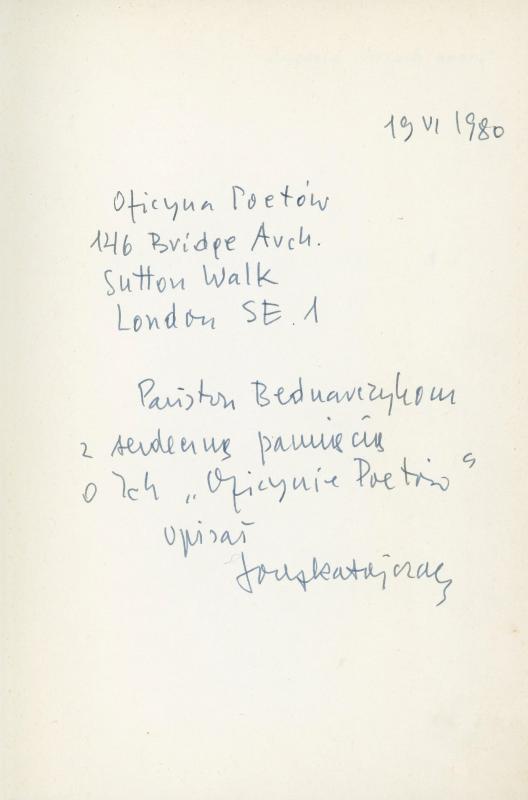 19 VI 1980
Oficyna Poetów
146 Bridge Arch.
Sutton Walk
London SE.1
Państwu Bednarczykom
z serdeczną pamięcią
o Ich „Oficynie Poetów"
wpisał
Józef Ratajczak